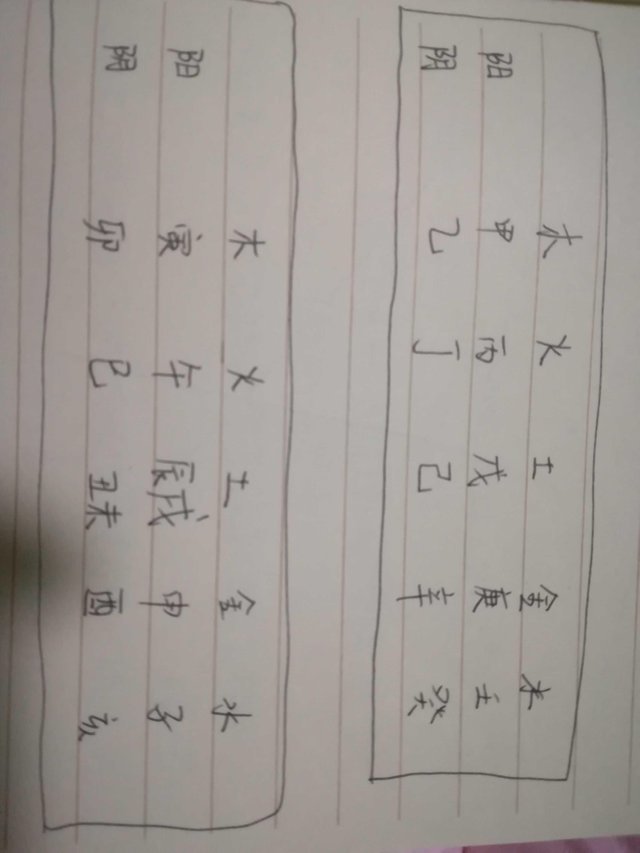 木 火 土 金 水
阳 甲 丙 戊 庚 壬
阴 乙 丁 己 辛 癸
木 火 土 金 水
阳 寅 午 辰戌 申 子
阴 卯 巳 丑未 酉 亥